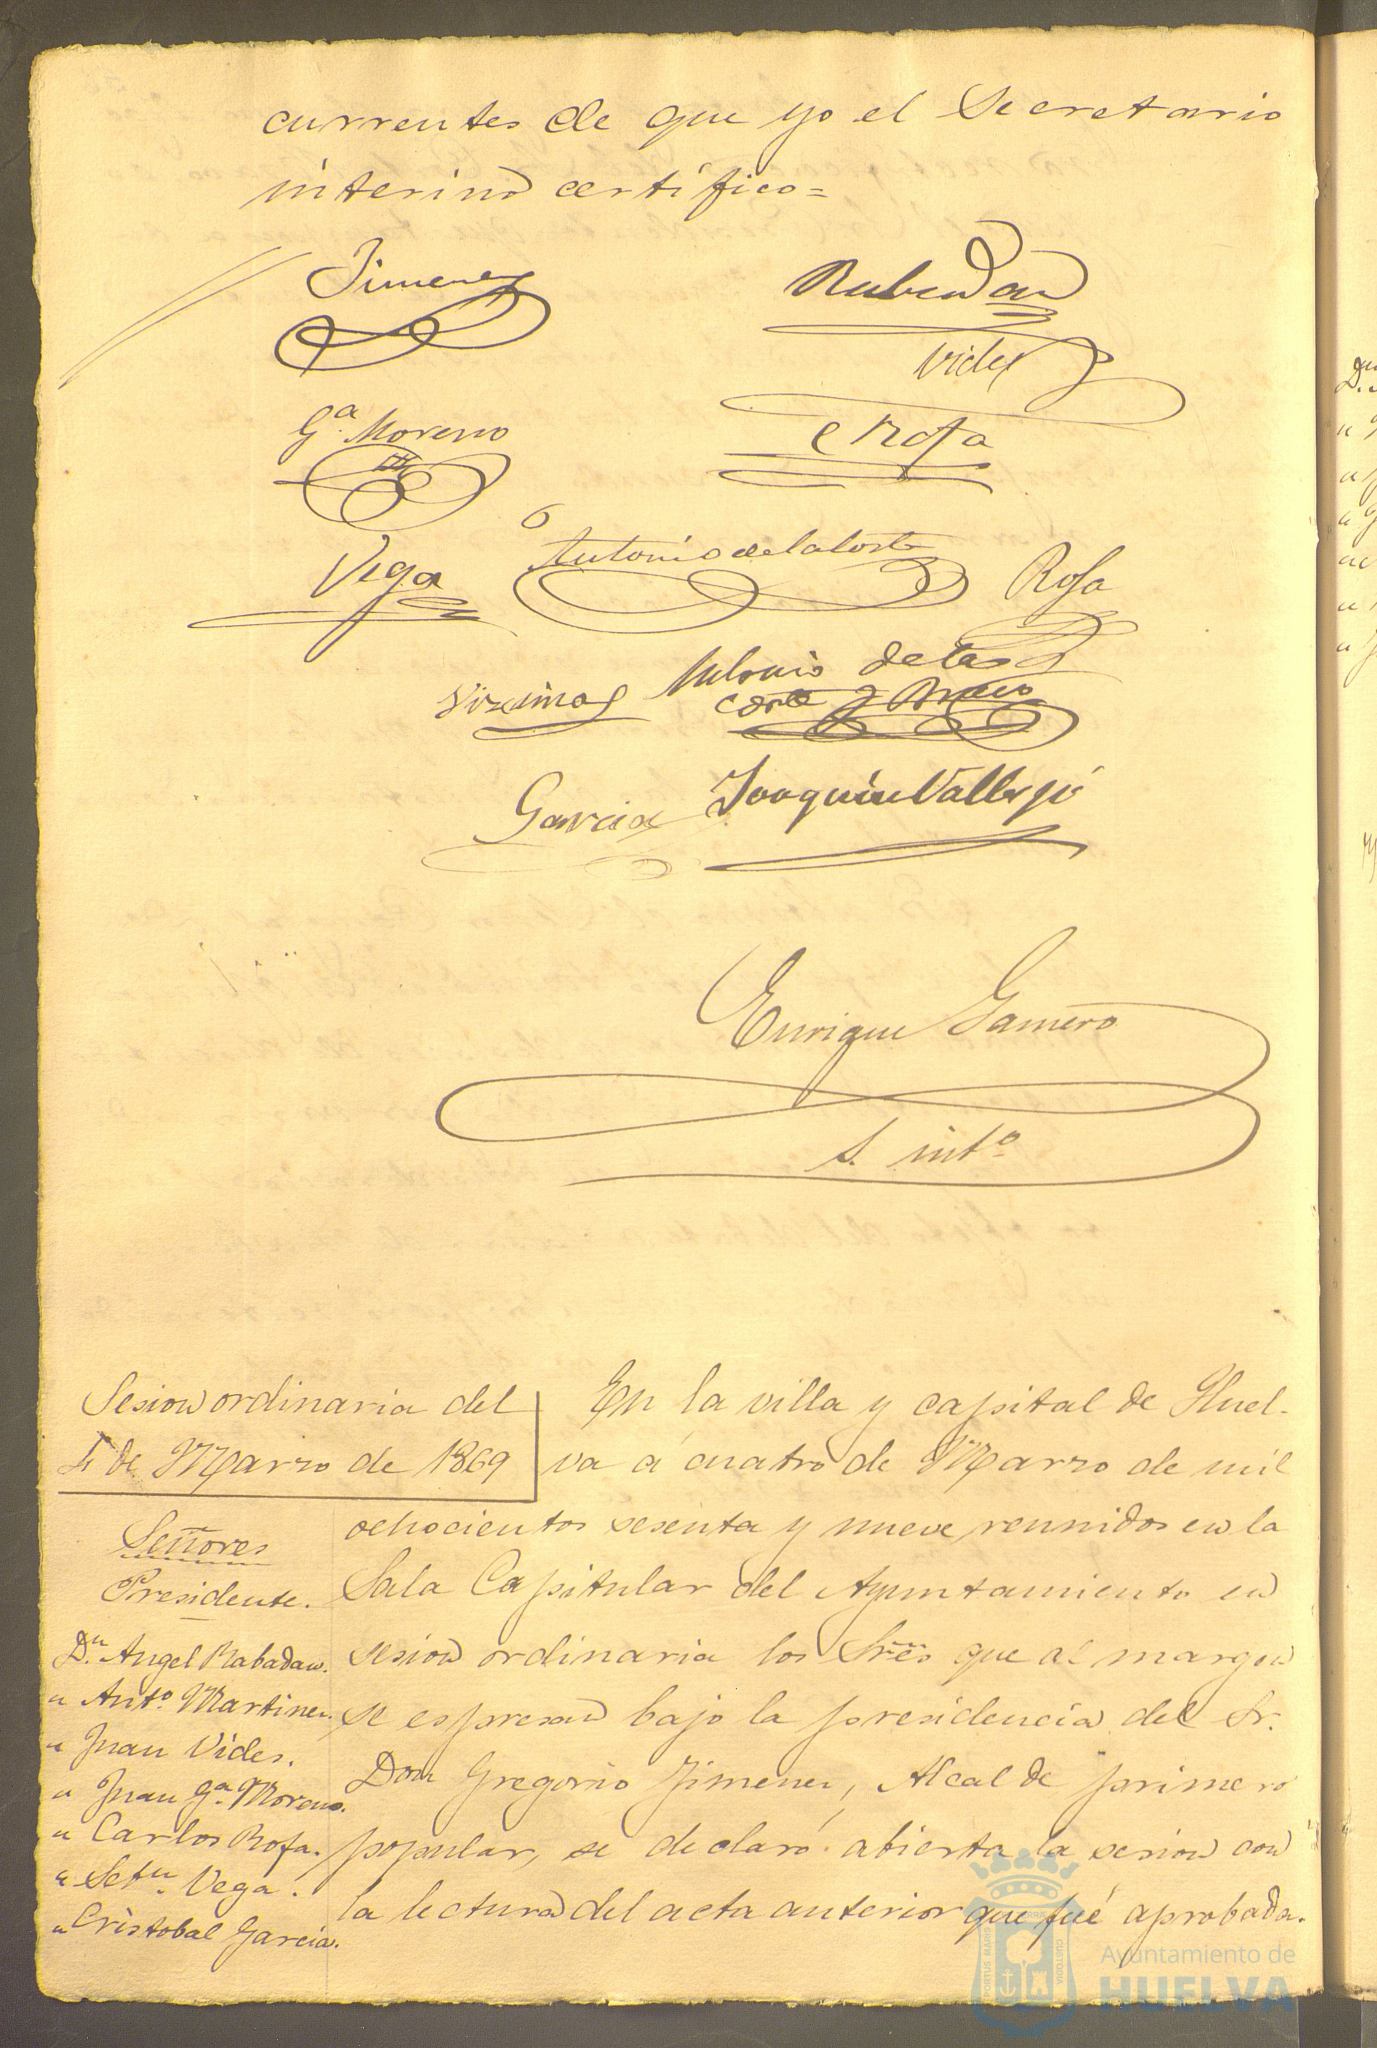 currentes de que yo el Secretario
interino certifico=
Jimenez
Rabadan
Vides
Gª Moreno
C Rofa
Vega
Antonio de la Corte
Rofa
Antonio de la
Corte y Bravo
Garcia
Joaquin Vallejo
Enrique Gamero
S. intº
Sesion ordinaria del
4 de Marzo de 1869
Señores
Presidente.
Dn. Angel Rabadan.
" Antº Martinez.
" Juan Vides.
" Juan Gª Moreno.
" Carlos Rofa.
" Setn. Vega.
" Cristobal Garcia.
En la villa y capital de Huel-
va á cuatro de Marzo de mil
ochocientos sesenta y nueve reunidos en la
Sala Capitular del Ayuntamiento en
sesion ordinaria los Sres que al margen
se espresan bajo la presidencia del Sr.
Don Gregorio Jimenez, Alcalde primero
popular, se declaró abierta la sesion con
la lectura del acta anterior que fué aprobada.
PORTUS MARIS
CUSTODIA
Ayuntamiento de
HUELVA